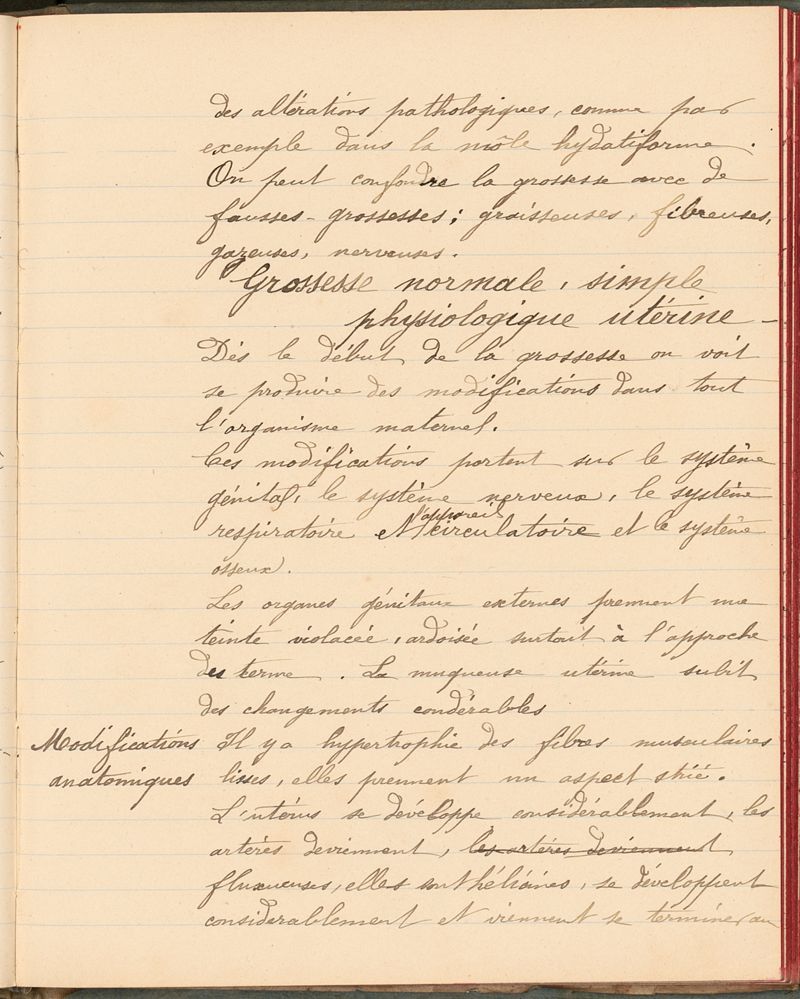 des altérations pathologiques, comme par
exemple dans la môle hydatiforme.
On peut confondre la grossesse avec de
fausses-grossesses; graisseuses, fibreuses,
gazeuses, nerveuses.
Grossesse normale, simple
physiologique utérine -
Dès le début de la grossesse on voit
se produire des modifications dans tout
l'organisme maternel.
Ces modifications portent sur le système
génital, le système nerveux, le système
l'appareil
respiratoire et circulatoire et le système
osseux.
Les organes génitaux externes prennent une
teinte violacée, ardoisée surtout à l'approche
des terme. La muqueuse utérine subit
des changements condérables
Modifications Il y a hypertrophie des fibres musculaires
anatomiques lisses, elles prennent un aspect strié.
L'utérus se développe considérablement, les
artères deviennent, les artères deviennent
fluxueuses, elles sont hélicines, se développent
considerablement et viennent se terminer au